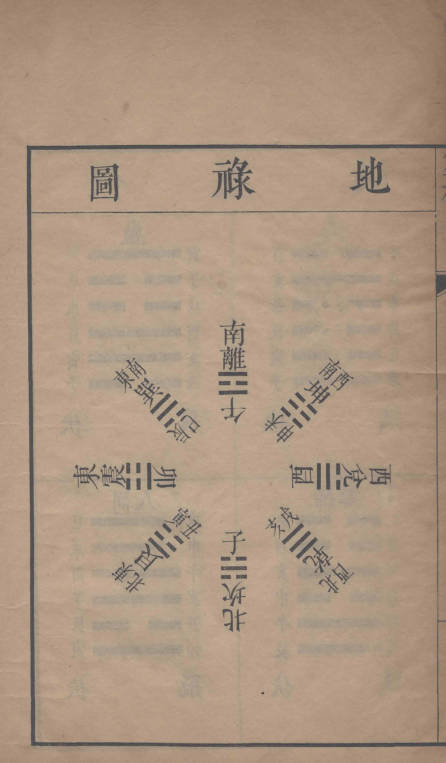 地祿圖
南離午
西南坤未申
西兌酉
西北乾戌亥
北坎子
東北艮丑寅
東震卯
東南巽辰巳